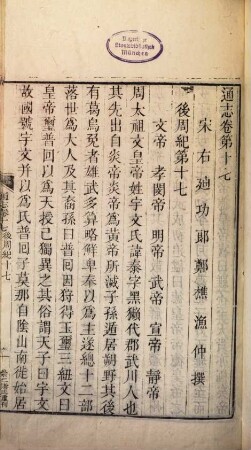 通志卷第十七
宋右迪功郎鄭樵漁仲撰
後周紀第十七
文帝 孝閔帝 明帝 武帝 宣帝 靜帝
周太祖文皇帝姓宇文氏諱泰字黑獺代郡武川人也
其先出自炎帝炎帝為黃帝所滅子孫遁居朔野其後
有葛烏兔者雄武多算略鮮卑奉以為主遂總十二部
落世為大人及其裔孫曰普回因狩得玉璽三紐文曰
皇帝璽普回以為天授己獨異之其俗謂天子曰宇文
故國號宇文并以為氏普回子莫那自陰山南徙始居
後周紀十七
Staatsbibliothek
München